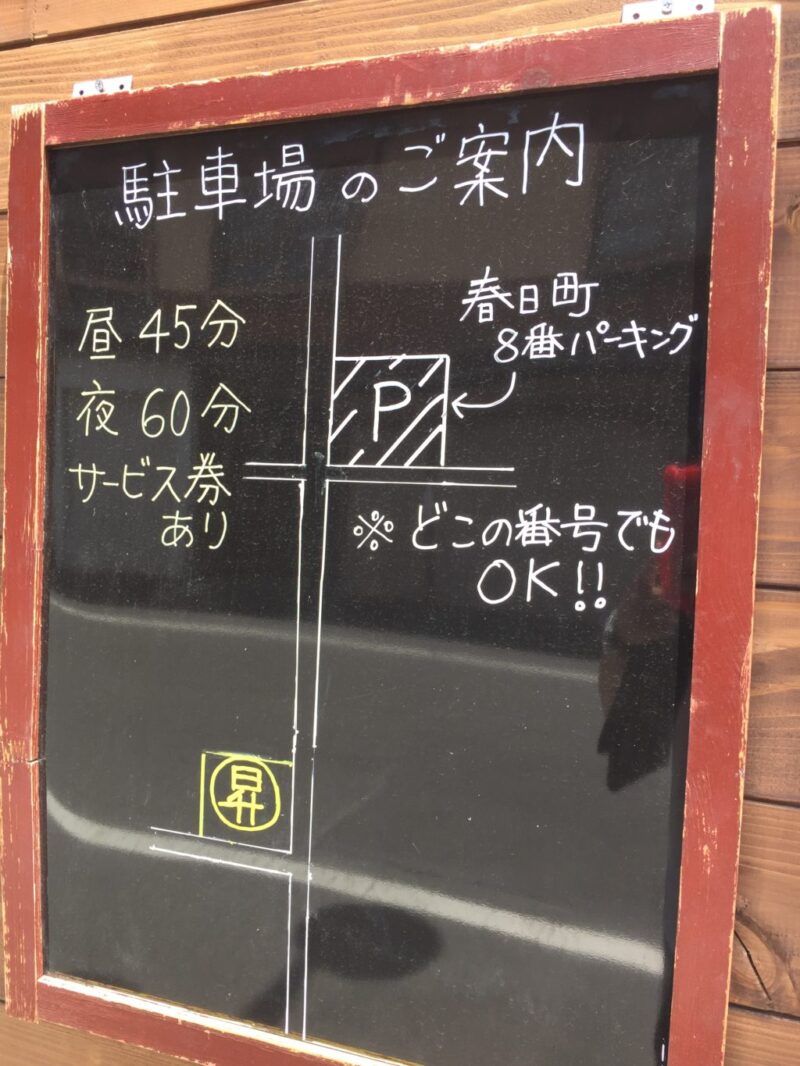 駐車場のご案内
昼 45分
夜 60分
サービス券
あり
春日町
8番パーキング
P
※ どこの番号でも
OK!!
昇